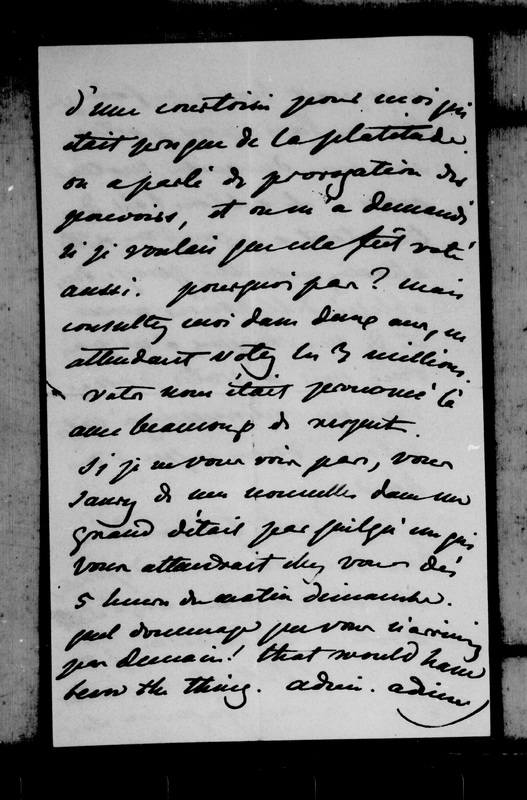 d'une courtoisie pour moi qui
était presque de la platitude.
on a parlé de prorogation des
pouvoirs, et on m'a demandé
si je voulais que cela fût voté
aussi. pourquoi pas? mais
consultez moi dans deux ans, en
attendant votez les 3 millions.
votre nom était prononcé là
avec beaucoup de respect.
si je ne vous vois pas, vous
saurez de mes nouvelles dans un
grand détail par quelqu'un qui
vous attendrait chez vous dès
5 heures du matin dimanche.
quel dommage que vous n'arriviez
pas demain! that would have
been the thing. adieu. adieu